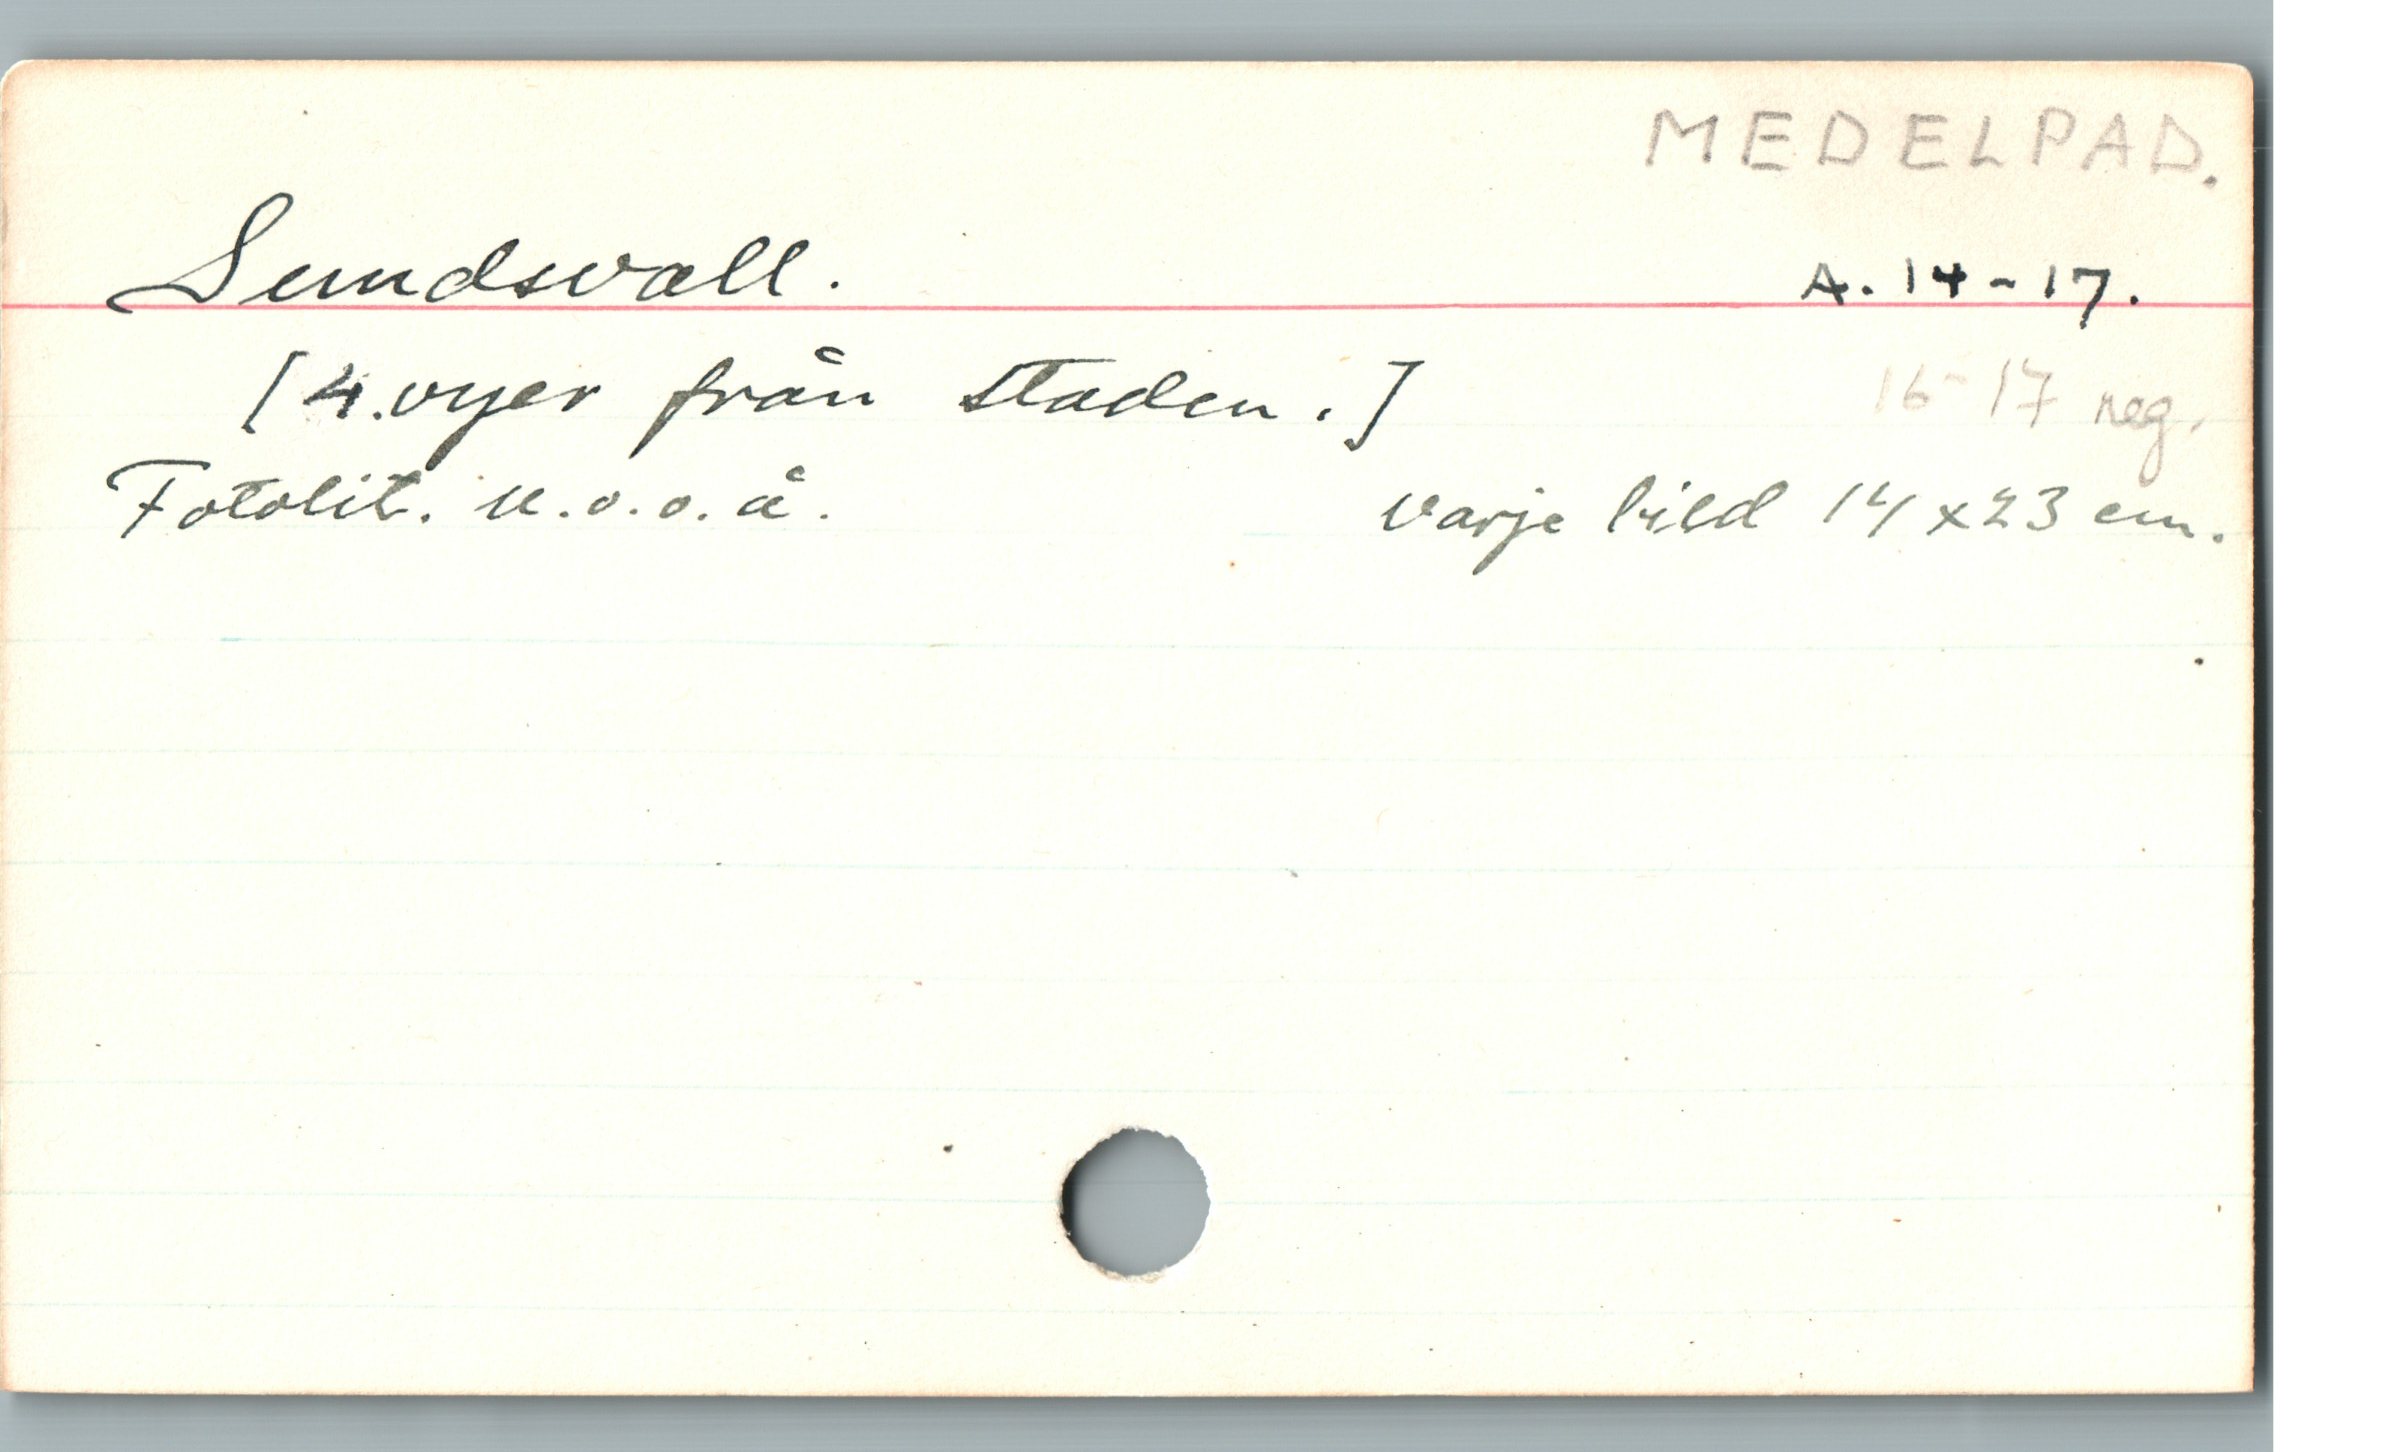 MEDELPAD.
Sundsvall. A. 14-17.
[4. vyer från staden.] 16-17 neg.
Fotolit. u.o.o.å. varje bild 14x23 cm.